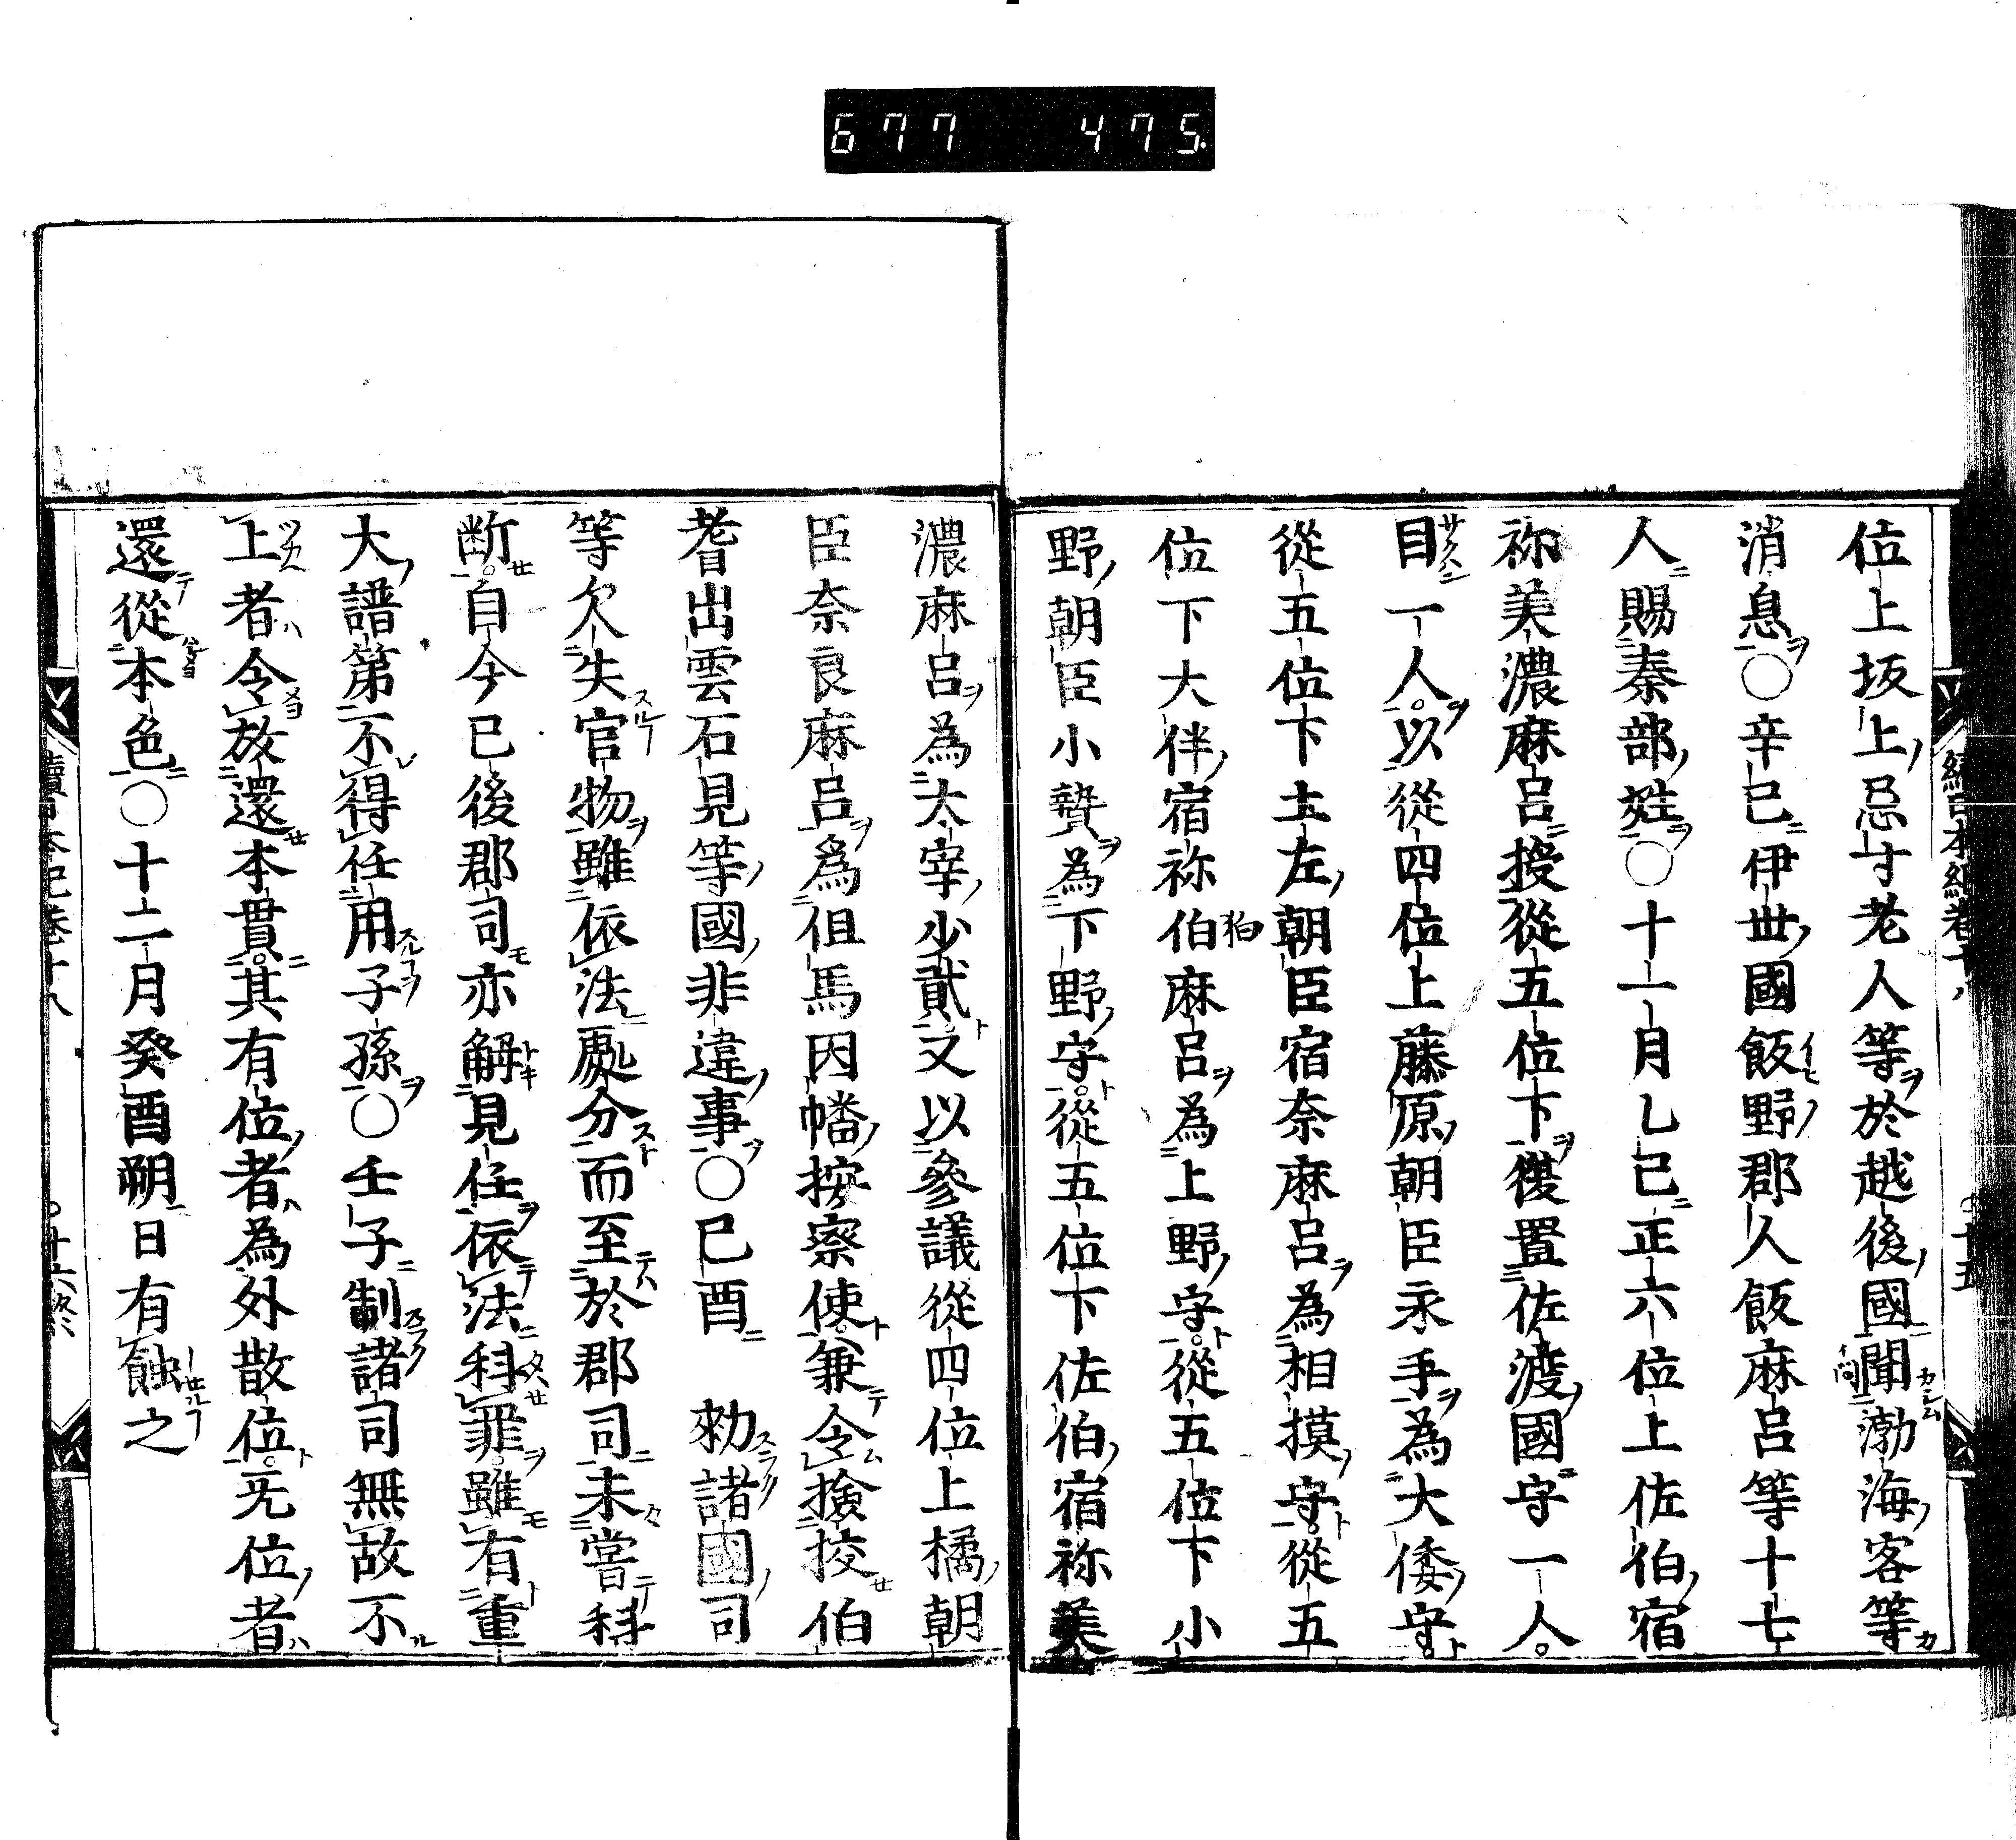 677 475.
位上坂上忌寸老人等於越後國聞渤海客等
消息○辛巳伊世國飯野郡人飯麻呂等十七
人賜秦部姓○十一月乙巳正六位上佐伯宿
祢美濃麻呂授從五位下復置佐渡國守一人
目一人以從四位上藤原朝臣永手為大倭守
從五位下土左朝臣宿奈麻呂為相摸守從五
位下大伴宿祢伯麻呂為上野守從五位下小
野朝臣小贄為下野守從五位下佐伯宿祢美
濃麻呂為太宰少貳又以參議從四位上橘朝
臣奈良麻呂為伹馬因幡按察使兼令撿挍伯
耆出雲石見等國非違事○巳酉 勑諸國司
等欠失官物雖依法處分而至於郡司未嘗科
断自今已後郡司亦解見任依法科罪雖有重
大譜第不得任用子孫○壬子制諸司無故不
上者令放還本貫其有位者為外散位无位者
還從本色○十二月癸酉朔日有蝕之